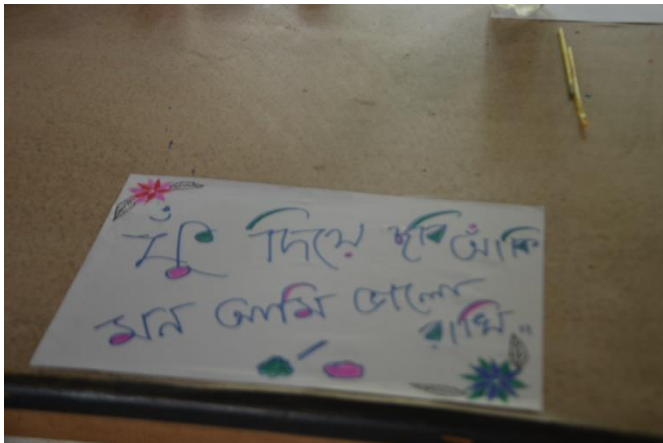 ফুঁ দিয়ে ছবি আঁকি
মন আমি ভালো
রাখি॥